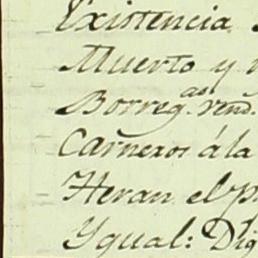 Existencia
Muerto y
Borreg.as vend.
Carneros á la
Heran el p
Ygual: Dig